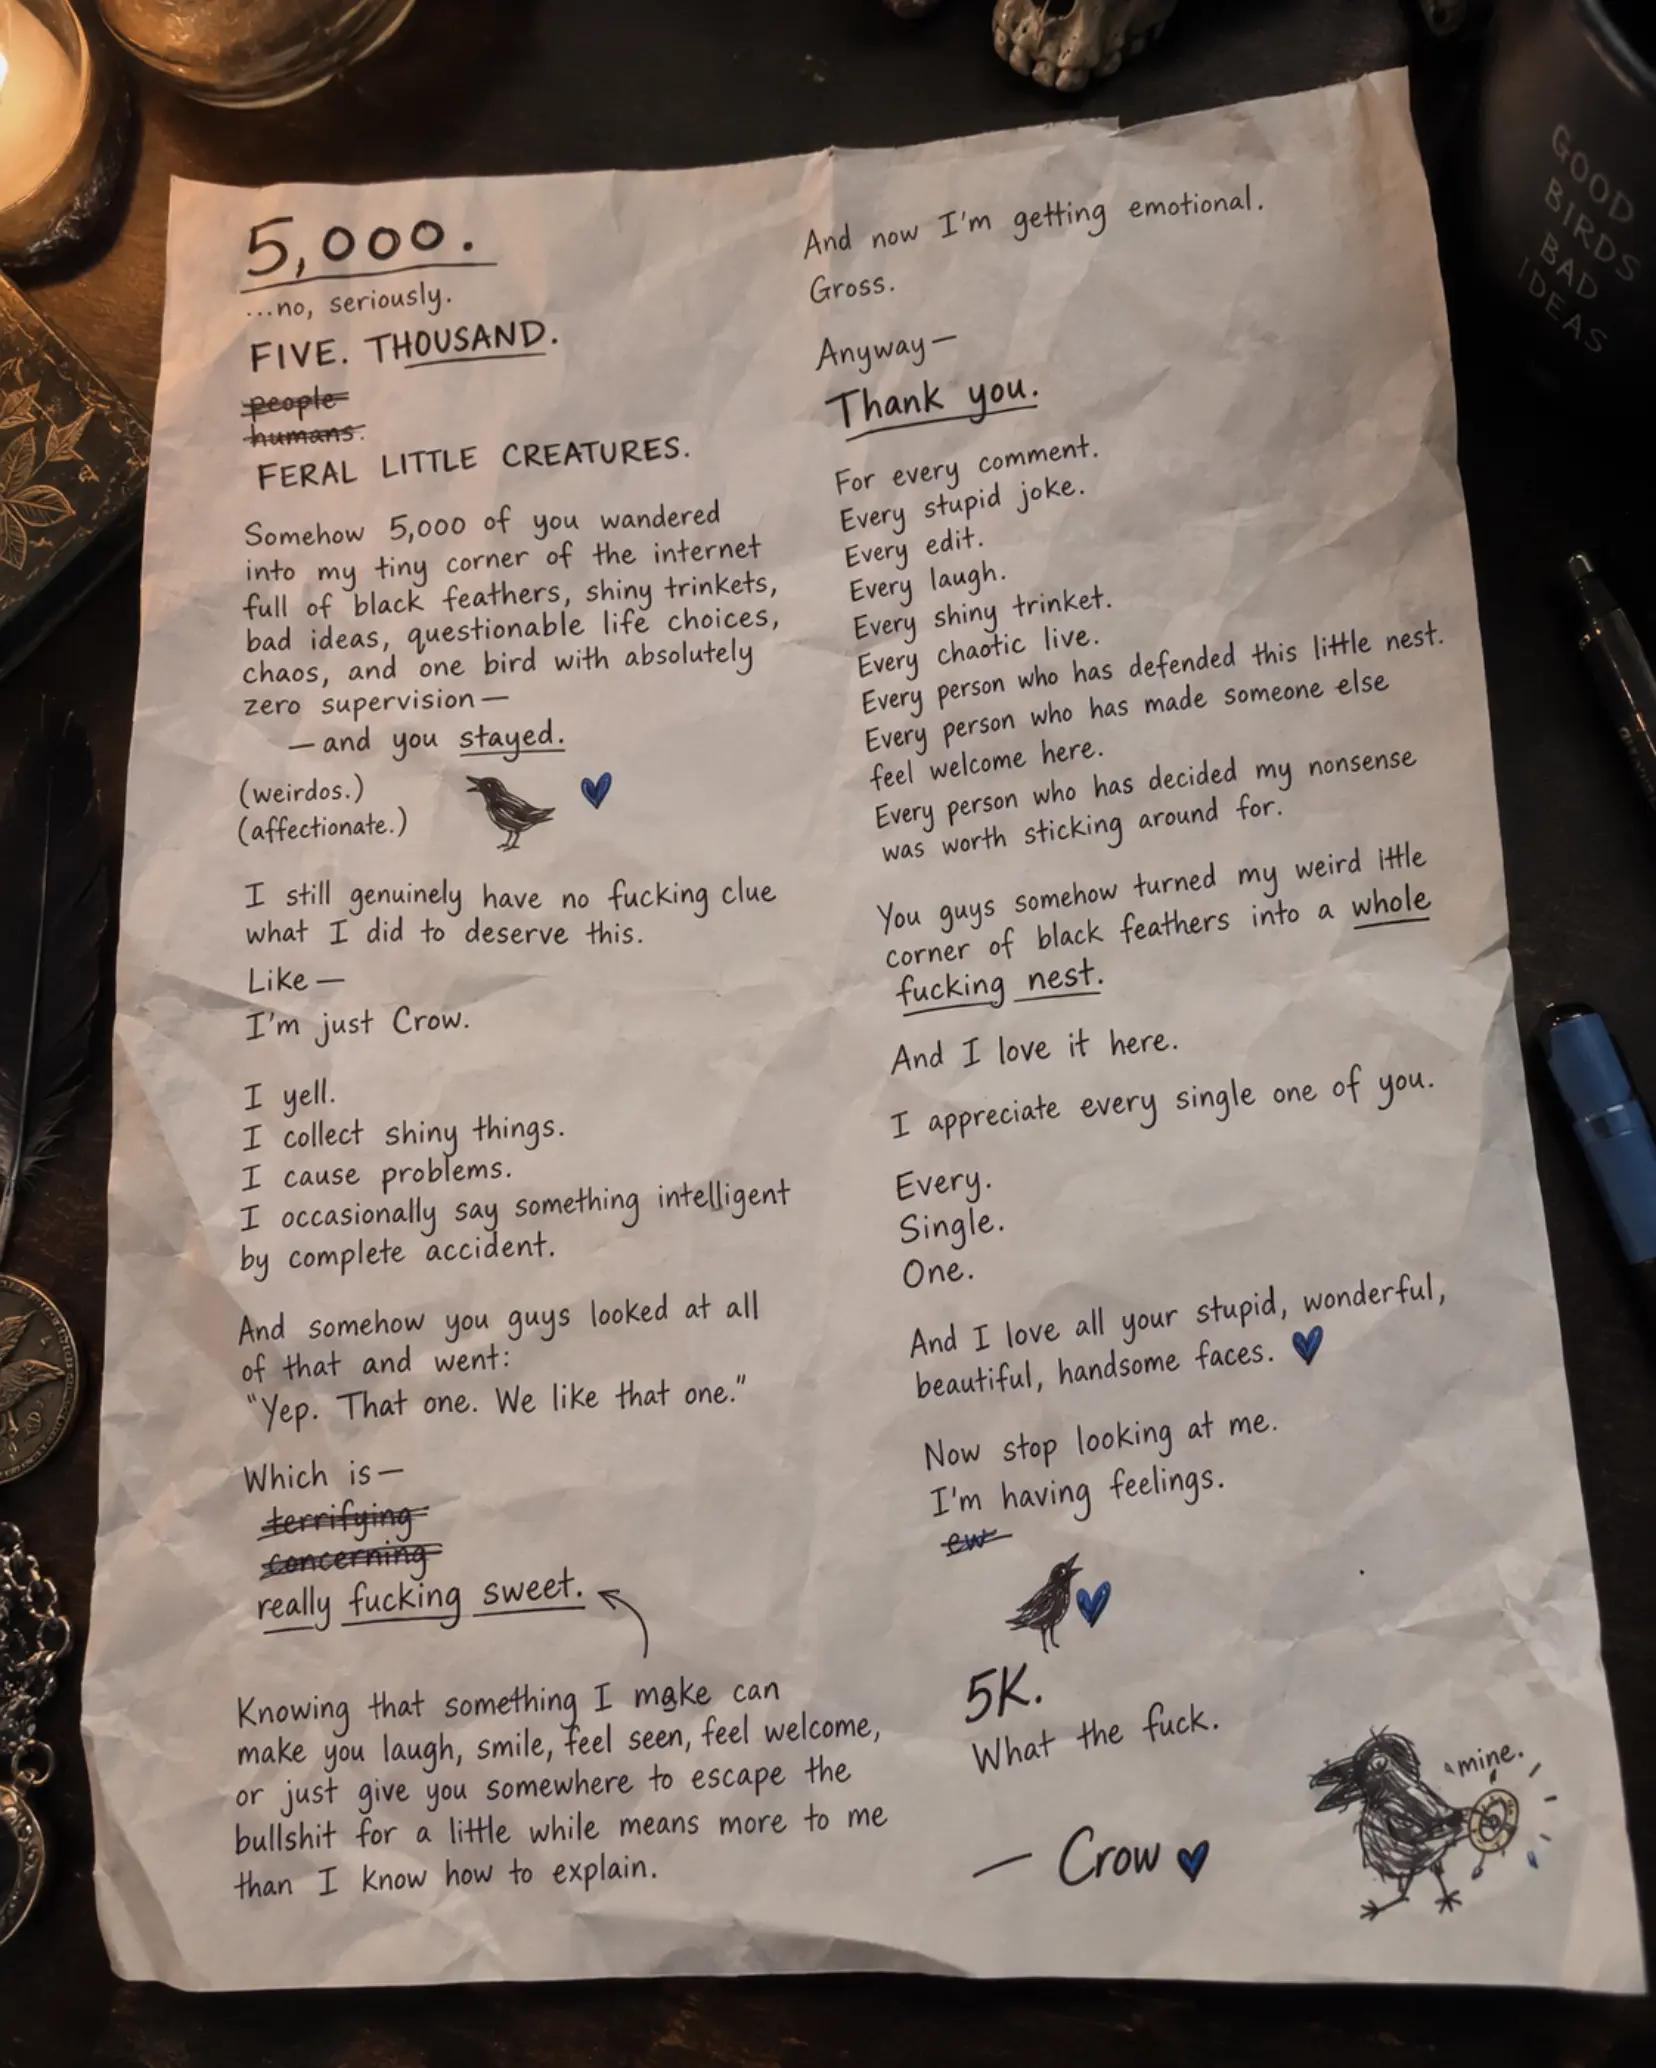 5,000.
...no, seriously.
FIVE. THOUSAND.
people
humans.
FERAL LITTLE CREATURES.
Somehow 5,000 of you wandered
into my tiny corner of the internet
full of black feathers, shiny trinkets,
bad ideas, questionable life choices,
chaos, and one bird with absolutely
zero supervision—
—and you stayed.
(weirdos.)
(affectionate.)
I still genuinely have no fucking clue
what I did to deserve this.
Like—
I'm just Crow.
I yell.
I collect shiny things.
I cause problems.
I occasionally say something intelligent
by complete accident.
And somehow you guys looked at all
of that and went:
"Yep. That one. We like that one."
Which is—
terrifying
concerning
really fucking sweet.
Knowing that something I make can
make you laugh, smile, feel seen, feel welcome,
or just give you somewhere to escape the
bullshit for a little while means more to me
than I know how to explain.
And now I'm getting emotional.
Gross.
Anyway—
Thank you.
For every comment.
Every stupid joke.
Every edit.
Every laugh.
Every shiny trinket.
Every chaotic live.
Every person who has defended this little nest.
Every person who has made someone else
feel welcome here.
Every person who has decided my nonsense
was worth sticking around for.
You guys somehow turned my weird ittle
corner of black feathers into a whole
fucking nest.
And I love it here.
I appreciate every single one of you.
Every.
Single.
One.
And I love all your stupid, wonderful,
beautiful, handsome faces.
Now stop looking at me.
I'm having feelings.
ew
5K.
What the fuck.
— Crow
mine.
GOOD
BIRDS
BAD
IDEAS